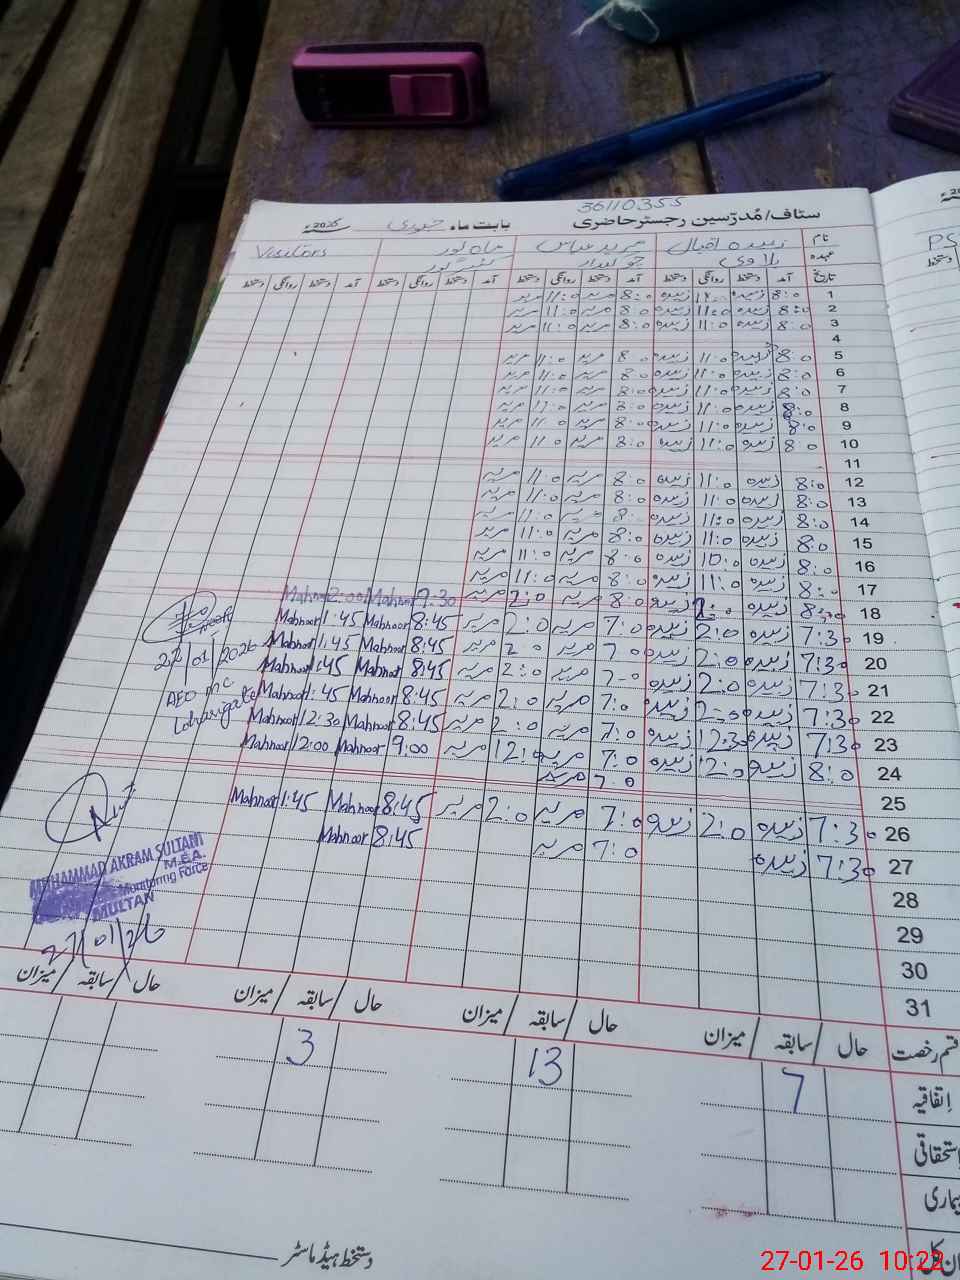 36110355
سٹاف/مُدرّسین رجسٹر حاضری بابت ماہ جنوری
نام زبیدہ اقبال مرید عباس ماہ نور Visitors
عہدہ چوکیدار
تاریخ آمد دستخط روانگی دستخط آمد دستخط روانگی دستخط آمد دستخط روانگی دستخط آمد دستخط روانگی دستخط
1 8:0 زبیدہ زبیدہ 8:0 مرید 11:0 مرید
2 8:0 زبیدہ 11:0 زبیدہ 8:0 مرید 11:0 مرید
3 8:0 زبیدہ 11:0 زبیدہ 8:0 مرید 11:0 مرید
4
5 8:0 زبیدہ 11:0 زبیدہ 8:0 مرید 11:0 مرید
6 8:0 زبیدہ 11:0 زبیدہ 8:0 مرید 11:0 مرید
7 8:0 زبیدہ 11:0 زبیدہ 8:0 مرید 11:0 مرید
8 8:0 زبیدہ 11:0 زبیدہ 8:0 مرید 11:0 مرید
9 8:0 زبیدہ 11:0 زبیدہ 8:0 مرید 11:0 مرید
10 8:0 زبیدہ 11:0 زبیدہ 8:0 مرید 11:0 مرید
11
12 8:0 زبیدہ 11:0 زبیدہ 8:0 مرید 11:0 مرید
13 8:0 زبیدہ 11:0 زبیدہ 8:0 مرید 11:0 مرید
14 8:0 زبیدہ 11:0 زبیدہ 8:0 مرید 11:0 مرید
15 8:0 زبیدہ 11:0 زبیدہ 8:0 مرید 11:0 مرید
16 8:0 زبیدہ 10:0 زبیدہ 8:0 مرید 11:0 مرید
17 8:0 زبیدہ 11:0 زبیدہ 8:0 مرید 11:0 مرید
18 زبیدہ زبیدہ 8:0 مرید 2:0 مرید 9:30 Mahnoor 2:00 Mahnoor
19 7:30 زبیدہ 2:0 زبیدہ 7:0 مرید 2:0 مرید 8:45 Mahnoor 1:45 Mahnoor
20 7:30 زبیدہ 2:0 زبیدہ 7:0 مرید 2:0 مرید 8:45 Mahnoor 1:45 Mahnoor
21 7:30 زبیدہ 2:0 زبیدہ 7:0 مرید 2:0 مرید 8:45 Mahnoor 1:45 Mahnoor
22 7:30 زبیدہ 2:0 زبیدہ 7:0 مرید 2:0 مرید 8:45 Mahnoor 1:45 Mahnoor
23 7:30 زبیدہ 12:30 زبیدہ 7:0 مرید 2:0 مرید 8:45 Mahnoor 12:30 Mahnoor
24 8:0 زبیدہ 12:0 زبیدہ 7:0 مرید 12:0 مرید 9:00 Mahnoor 12:00 Mahnoor
7:0 مرید
25
26 7:30 زبیدہ 2:0 زبیدہ 7:0 مرید 2:0 مرید 8:45 Mahnoor 1:45 Mahnoor
27 7:30 زبیدہ 7:0 مرید 8:45 Mahnoor
28
29
30
31
01/2026
AEO MC
Lohari gate
MUHAMMAD AKRAM SULTANI
M.E.A.
Monitoring Force
MULTAN
27/01/26
قسم رخصت حال سابقہ میزان حال سابقہ میزان حال سابقہ میزان حال سابقہ میزان
اتفاقیہ 7 13 3
استحقاقی
بیماری
دستخط ہیڈ ماسٹر
27-01-26 10:22